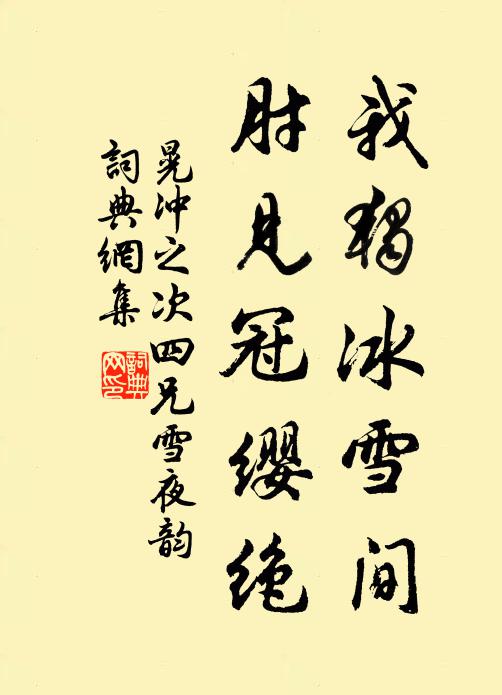 我独冰雪间
肘见冠缨绝
晃冲之次四兄雪夜韵
詞典網集
詞典网印